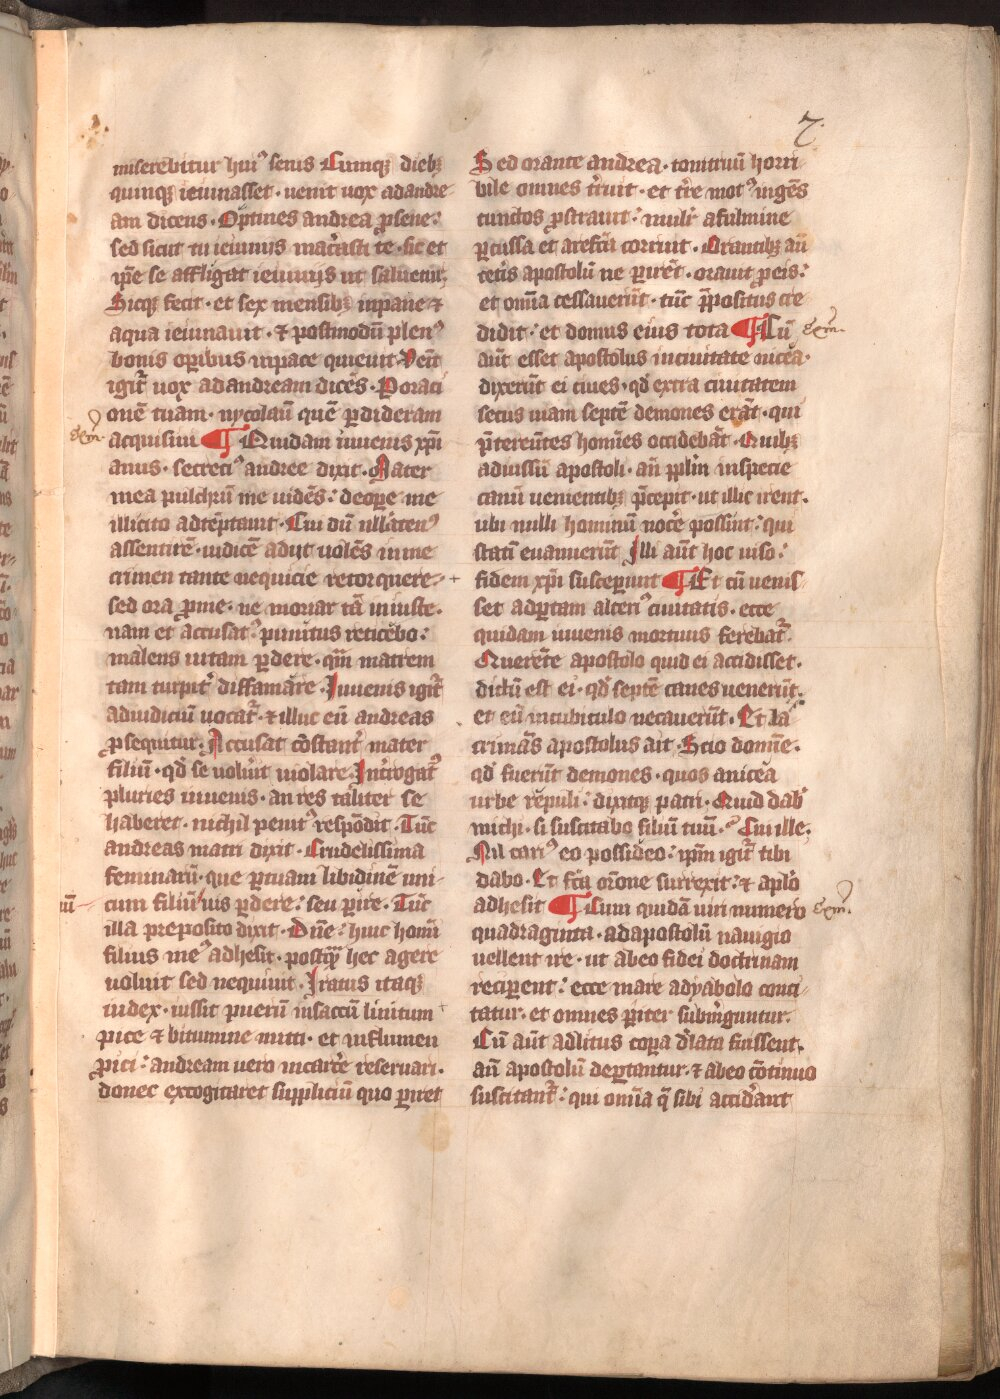 7.
miserebitur hui⁹ senis Cumq̢ dieb⁊
quinq̢ ieiunasset · uenit uox ad andre
am dicens · Optines andrea ꝓ sene :
sed sicut tu ieiuniis mac̄asti te · sic et
ip̄e se affligat ieiuniis ut saluetur
Sicq̢ fecit · et sex mensib⁊ in pane ⁊
aqua ieiunauit · ⁊ postmodū plen⁹
bonis oꝑibus in pace quieuit · Venit
igit̄ uox ad andream dicēs · Per oraci
onē tuam · nycolaū quē ꝑdideram
exm̄.
acquisiui ¶ Quidam iuuenis xp̄i
anus · secreti⁹ andree dixit · Mater
mea pulchrū me uidēs : de oꝑe me
illicito adtēptauit · Cui dū ullaten⁹
assentirē · iudicē adiit uolēs in me
crimen tante nequicie retorquere ·
sed ora ꝓ me · ne moriar tā iniuste ·
nam et accusat⁹ penitus reticebo :
malens uitam ꝑdere · qm̄ matrem
tam turpit̄ diffamare · Iuuenis igit̄
ad iudiciū uocat̄ · ⁊ illuc eū andreas
ꝓsequitur · Accusat cōstant̄ mater
filiū · qd̄ se uolūit uiolare · Int̄rogat⁹
pluries iuuenis · an res taliter se
haberet · nichil penit⁹ respōdit · Tūc
andreas matri dixit · Crudelissima
feminarū · que ꝑ tuam libidinē uni
cum filiū uis ꝑdere : seu ꝑire · Tūc
illa preposito dixit · Dn̄e : huic homī
filius me⁹ adhesit · postq̄ hec agere
uoluit sed nequiuit · Iratus itaq̢
iudex · iussit puerū in saccū linitum
pice ⁊ bitumine mitti · et in flumen
ꝓici : andream uero in carc̄e reseruari ·
donec excogitaret suppliciū quo ꝑiret
Sed orante andrea · tonitruū horri
bile omnes t̄ruit · et t̄re mot⁹ ingēs
cunctos ꝓstrauit : muli᷑ a fulmine
ꝑcussa et arefc̄a corruit · Orantib⁊ aū
cetis apostolū ne ꝑirēt · orauit ꝓ eis :
et om̄ia cessauerūt · tūc p̄positus cre
didit : et domus eius tota ¶ Cū
exm̄.
aūt esset apostolus in ciuitate nicea ·
dixerūt ei ciues · qd̄ extra ciuitatem
secus uiam septē demones erāt · qui
p̄tereūtes homīes occidebāt · Quib⁊
ad iussū apostoli · an̄ pp̄lm in specie
canū uenientib⁊ p̄cepit · ut illic irent ·
ubi nulli hominū noc̄e possint : qui
statī euanuerūt Illi aūt hoc uiso :
fidem xp̄i susceꝑunt ¶ Et cū uenis
set ad portam alteri⁹ ciuitatis · ecce
quidam iuuenis mortuus ferebat̄ ·
Querēte apostolo quid ei accidisset ·
dictū est ei · qd̄ septē canes uenerūt ·
et eū in cubiculo necauerūt · Et la
crimās apostolus ait · Scio domīe ·
qd̄ fuerūt demones · quos a nicea
urbe repuli : dixitq̢ patri · Quid dab̄
michi · si suscitabo filiū tuū · Cui ille :
Nil cari⁹ eo possideo : ip̄m igit̄ tibi
dabo · Et fc̄a or̄one surrexit : ⁊ apl̄o
adhesit ¶ Cum quidā uiri numero
exm̄.
quadraginta · ad apostolū nauigio
uellent ire · ut ab eo fidei doctrinam
reciꝑent : ecce mare a dyabolo conci
tatur · et omnes ꝑiter subm̄guntur ·
Cū aūt ad litus corꝑa d̄lata fuissent ·
an̄ apostolū deꝑtantur · ⁊ ab eo cōtinuo
suscitant̄ : qui om̄ia q̄ sibi accid̄ant